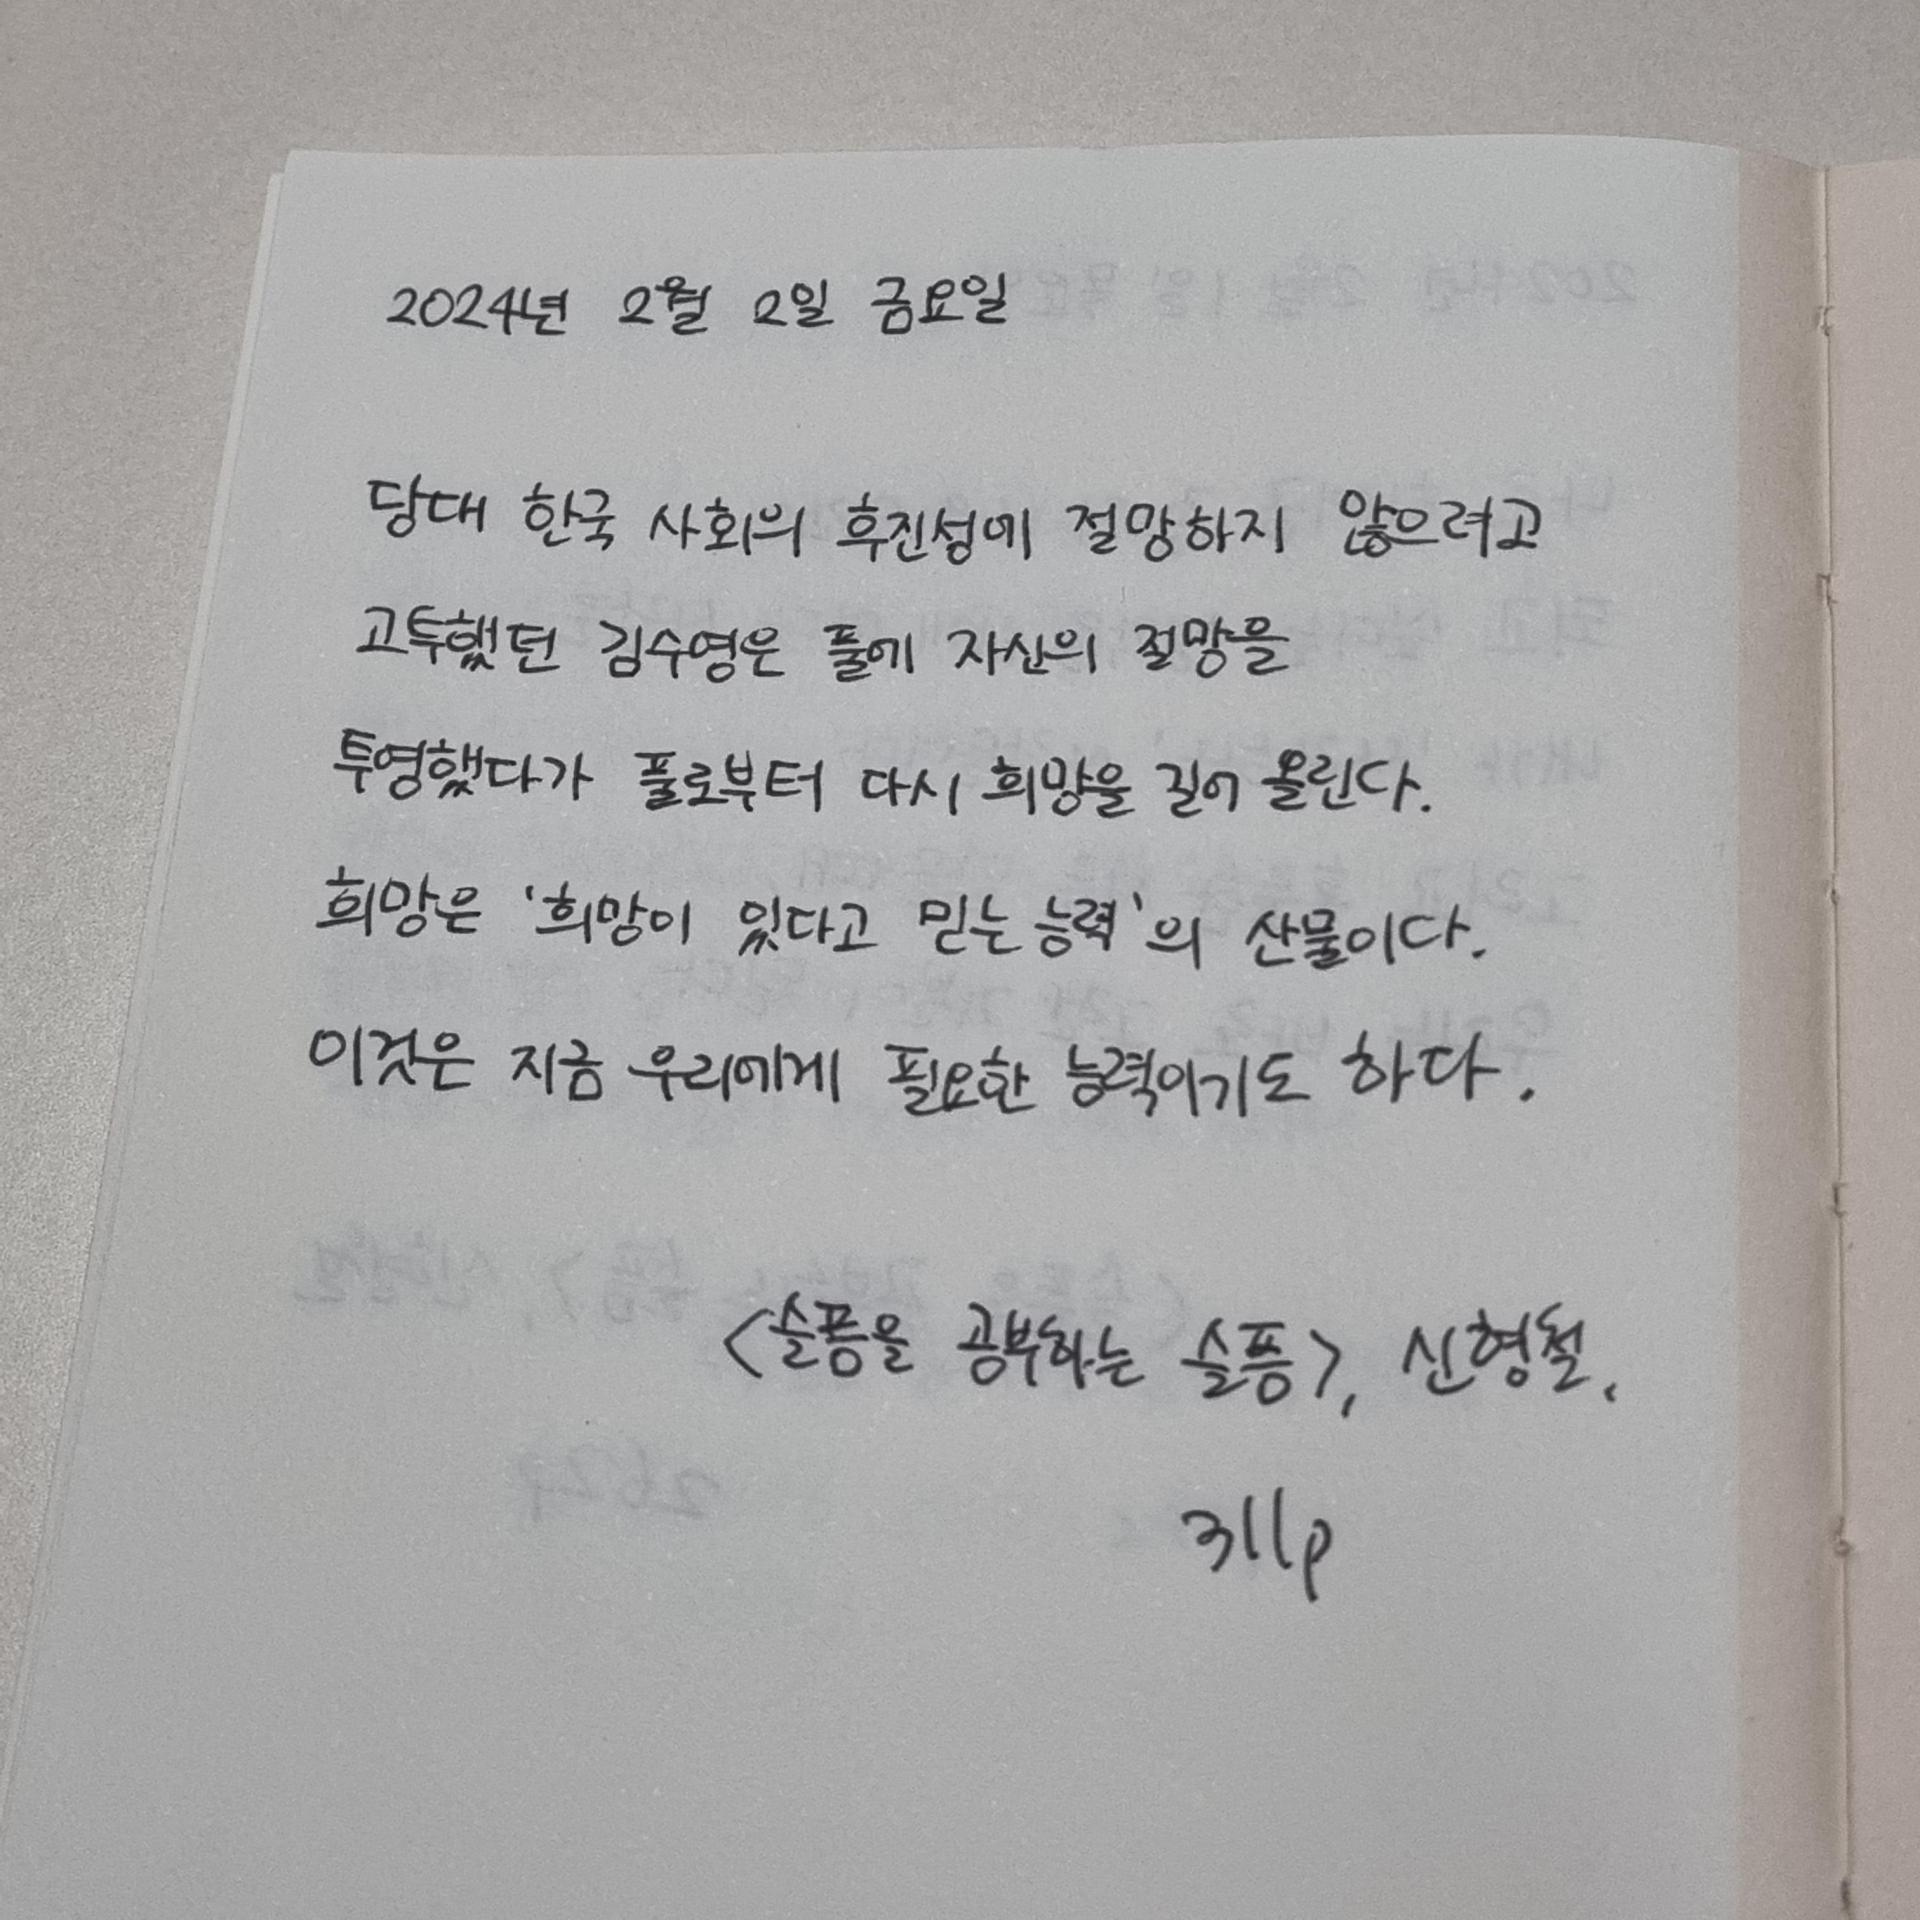 2024년 2월 2일 금요일
당대 한국 사회의 후진성에 절망하지 않으려고
고투했던 김수영은 풀에 자신의 절망을
투영했다가 풀로부터 다시 희망을 길어 올린다.
희망은 '희망이 있다고 믿는 능력'의 산물이다.
이것은 지금 우리에게 필요한 능력이기도 하다.
<슬픔을 공부하는 슬픔>, 신형철,
311p